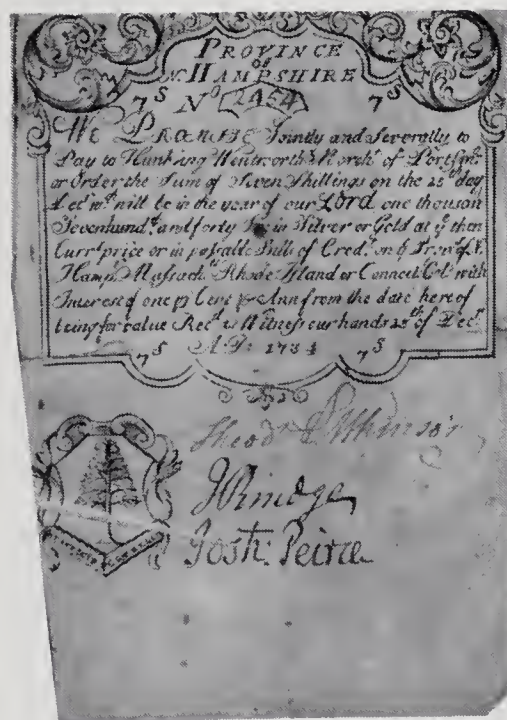 PROVINCE
of
N. HAMPSHIRE
7s No 2454 7s
We PROMISE Jointly and Severally to
Pay to Hunking Wentworth Merch't of Portsmo
or Order the Sum of Seven Shillings on the 25th day
Decemr will be in the year of our Lord one thousan
Sevenhundd and forty in Silver or Gold at ye then
Currt price or in passable Bills of Credt on ye Provs of N
Hampr Massachts Rhode Island or Connect Col with
Interest of one pr Cent pr Ann from the date here of
being for value Recd as Witness our hands 25th of Decr
7s A D: 1734 7s
Theodr Atkinson
J Rindge
Josh: Peirce